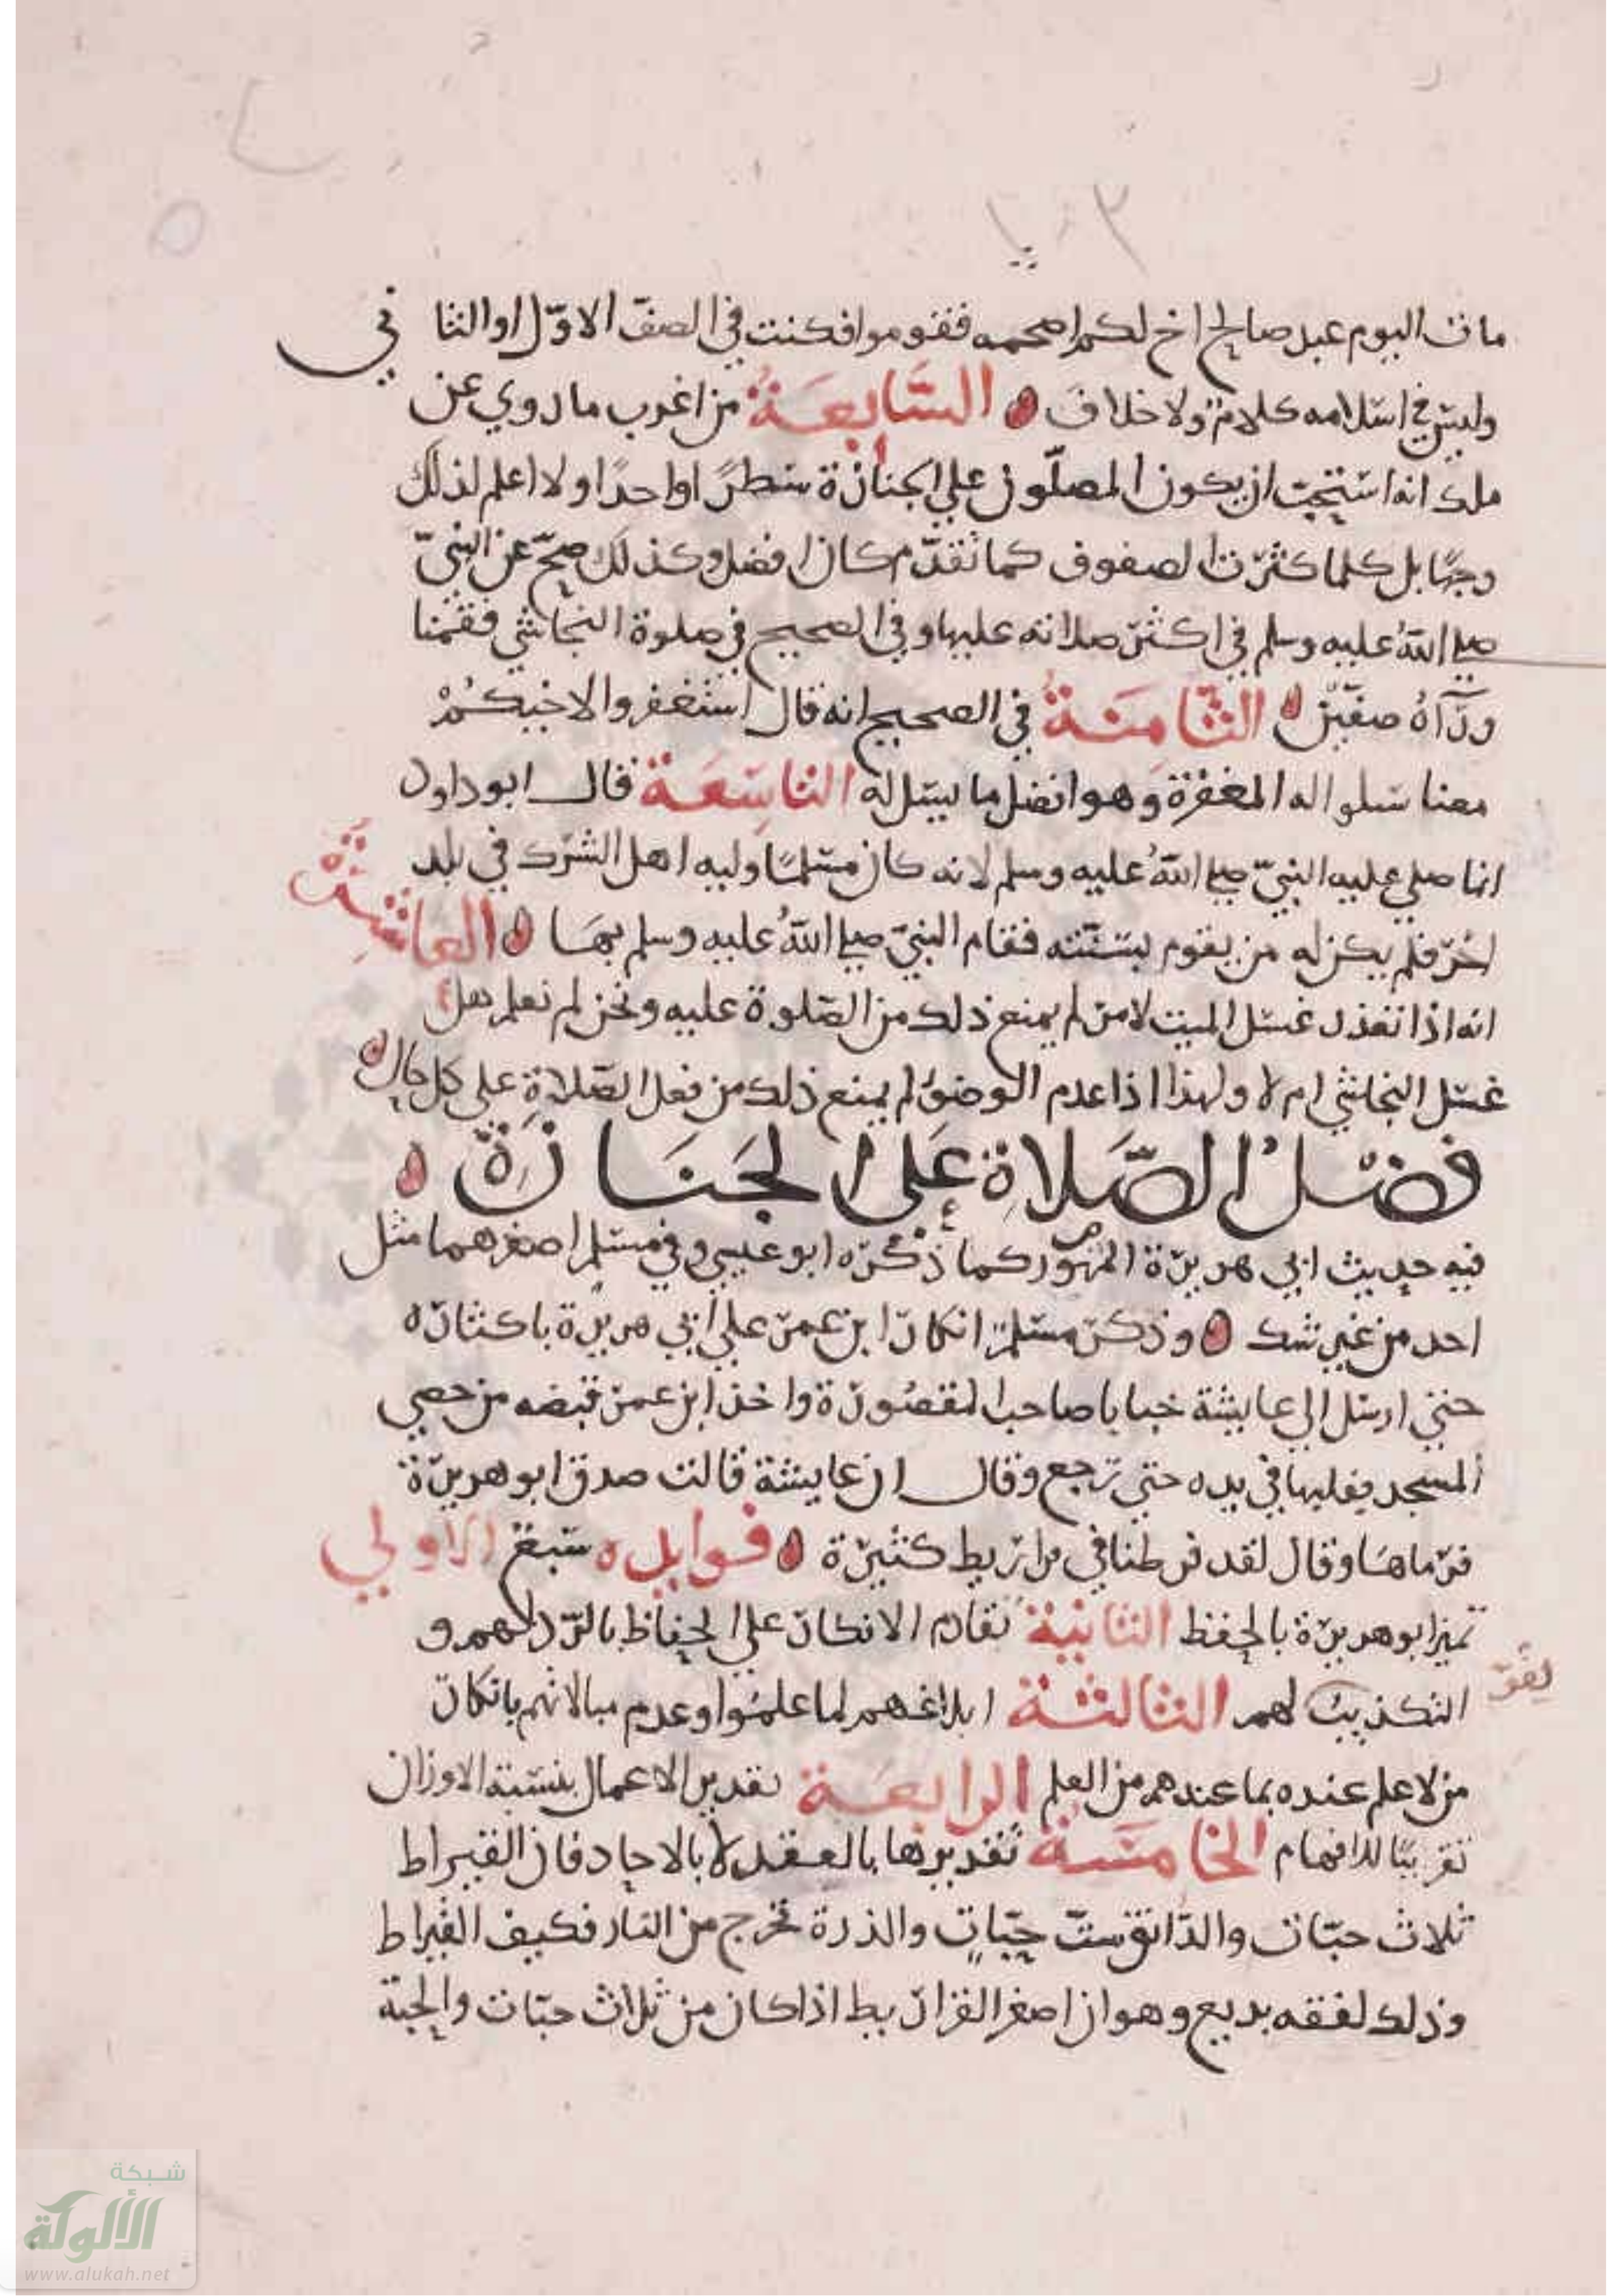 ١٠٣
مات اليوم عبد صالح اخ لكم اصحمه فقوموا فكنت في الصفّ الاوّل او الثاني
وليس في اسلامه كلام ولا خلاف السَّابعَةُ من اغرب ما روي عن
ملك انه استحبّ ان يكون المصلّون علي الجنازة سطرًا واحدًا ولا اعلم لذلك
وجهًا بل كلما كثرت الصفوف كما تقدّم كان افضل وكذلك صحّ عن النبيّ
صلي اللهُ عليه وسلم في اكثر صلاته عليها وفي الصحيح في صلوة النجاشي فقمنا
ورآهُ صفّين الثَّامنَةُ في الصحيح انه قال استغفروا لاخيكُمْ
معنا سلوا له المغفرة وهو افضل ما يسل له التاسِعَة قال ابو داود
انما صلي عليه النبيّ صلي اللهُ عليه وسلم لانه كان مسلمًا وليه اهل الشرك في بلد
اخر فلم يكن له من يقوم بسنّته فقام النبيّ صلي اللهُ عليه وسلم بهَا العاشِرَةُ
انه اذا تعذر غسل الميت لامر لم يمنع ذلك من الصّلوة عليه ونحن لم نعلم هل
غسل النجاشي ام لا ولهذا اذا عدم الوضوُ لم يمنع ذلك من فعل الصّلاةِ علي كل حال
فضْلُ الصَّلاةِ عَلى الجَنَازَةِ
فيه حديث ابي هريرة المشهور كما ذكره ابو عيسي وفي مسلم اصغرهما مثل
احد من غير شك وذكر مسلم انكار ابن عمر علي ابي هريرة باكثاره
حتي ارسل الي عايشة خبابا صاحب المقصُورة واخذ ابن عمر قبضه من حصي
المسجد يقلبها في يده حتي رجع وقال ان عايشة قالت صدق ابو هريرة
فرماهَا وقال لقد فرطنا في قراريط كثيرة فوايد سبعٌ الاولي
تميز ابو هريرة بالحفظ الثانِيَة تقادم الانكار علي الحفاظ بالرّد لهم و
التكذيبُ لهم الثالثة ابلاغهم لما علمُوا وعدم مبالاتهم بانكار
من لا علم عنده بما عندهم من العلم الرابعَة تقدير الاعمال بنسبة الاوزان
تقريبًا للافهام الخامسَةُ تقديرها بالعقد لا بالاحاد فان القيراط
ثلاث حبّات والدّانق ستّ حبّاتٍ والذرة تخرج من النار فكيف القيراط
وذلك لفقه بديع وهو ان اصغر القراريط اذا كان من ثلاث حبّات والحبة
شبكة
الألوكة
www.alukah.net